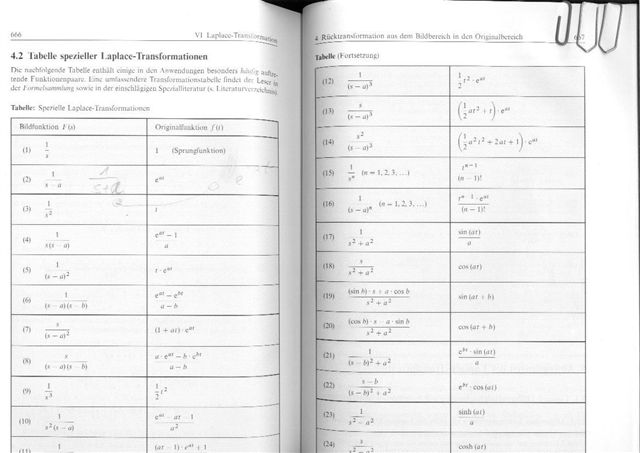 666 VI Laplace-Transformation
4.2 Tabelle spezieller Laplace-Transformationen
Die nachfolgende Tabelle enthält einige in den Anwendungen besonders häufig auftre-
tende Funktionenpaare. Eine umfassendere Transformationstabelle findet der Leser in
der Formelsammlung sowie in der einschlägigen Spezialliteratur (s. Literaturverzeichnis).
Tabelle: Spezielle Laplace-Transformationen
Bildfunktion F(s) Originalfunktion f(t)
(1) 1/s 1 (Sprungfunktion)
(2) 1/(s − a) e^{at}
1/(s+a)
(3) 1/s² t
(4) 1/(s(s − a)) (e^{at} − 1)/a
(5) 1/(s − a)² t · e^{at}
(6) 1/((s − a)(s − b)) (e^{at} − e^{bt})/(a − b)
(7) s/(s − a)² (1 + at) · e^{at}
(8) s/((s − a)(s − b)) (a · e^{at} − b · e^{bt})/(a − b)
(9) 1/s³ 1/2 t²
(10) 1/(s²(s − a)) (e^{at} − at − 1)/a²
(11) (at − 1) · e^{at} + 1
4 Rücktransformation aus dem Bildbereich in den Originalbereich 667
Tabelle (Fortsetzung)
(12) 1/(s − a)³ 1/2 t² · e^{at}
(13) s/(s − a)³ (1/2 at² + t) · e^{at}
(14) s²/(s − a)³ (1/2 a²t² + 2at + 1) · e^{at}
(15) 1/s^n (n = 1, 2, 3, ...) t^{n−1}/(n − 1)!
(16) 1/(s − a)^n (n = 1, 2, 3, ...) t^{n−1} · e^{at}/(n − 1)!
(17) 1/(s² + a²) sin (at)/a
(18) s/(s² + a²) cos (at)
(19) ((sin b) · s + a · cos b)/(s² + a²) sin (at + b)
(20) ((cos b) · s − a · sin b)/(s² + a²) cos (at + b)
(21) 1/((s − b)² + a²) e^{bt} · sin (at)/a
(22) (s − b)/((s − b)² + a²) e^{bt} · cos (at)
(23) 1/(s² − a²) sinh (at)/a
(24) s cosh (at)